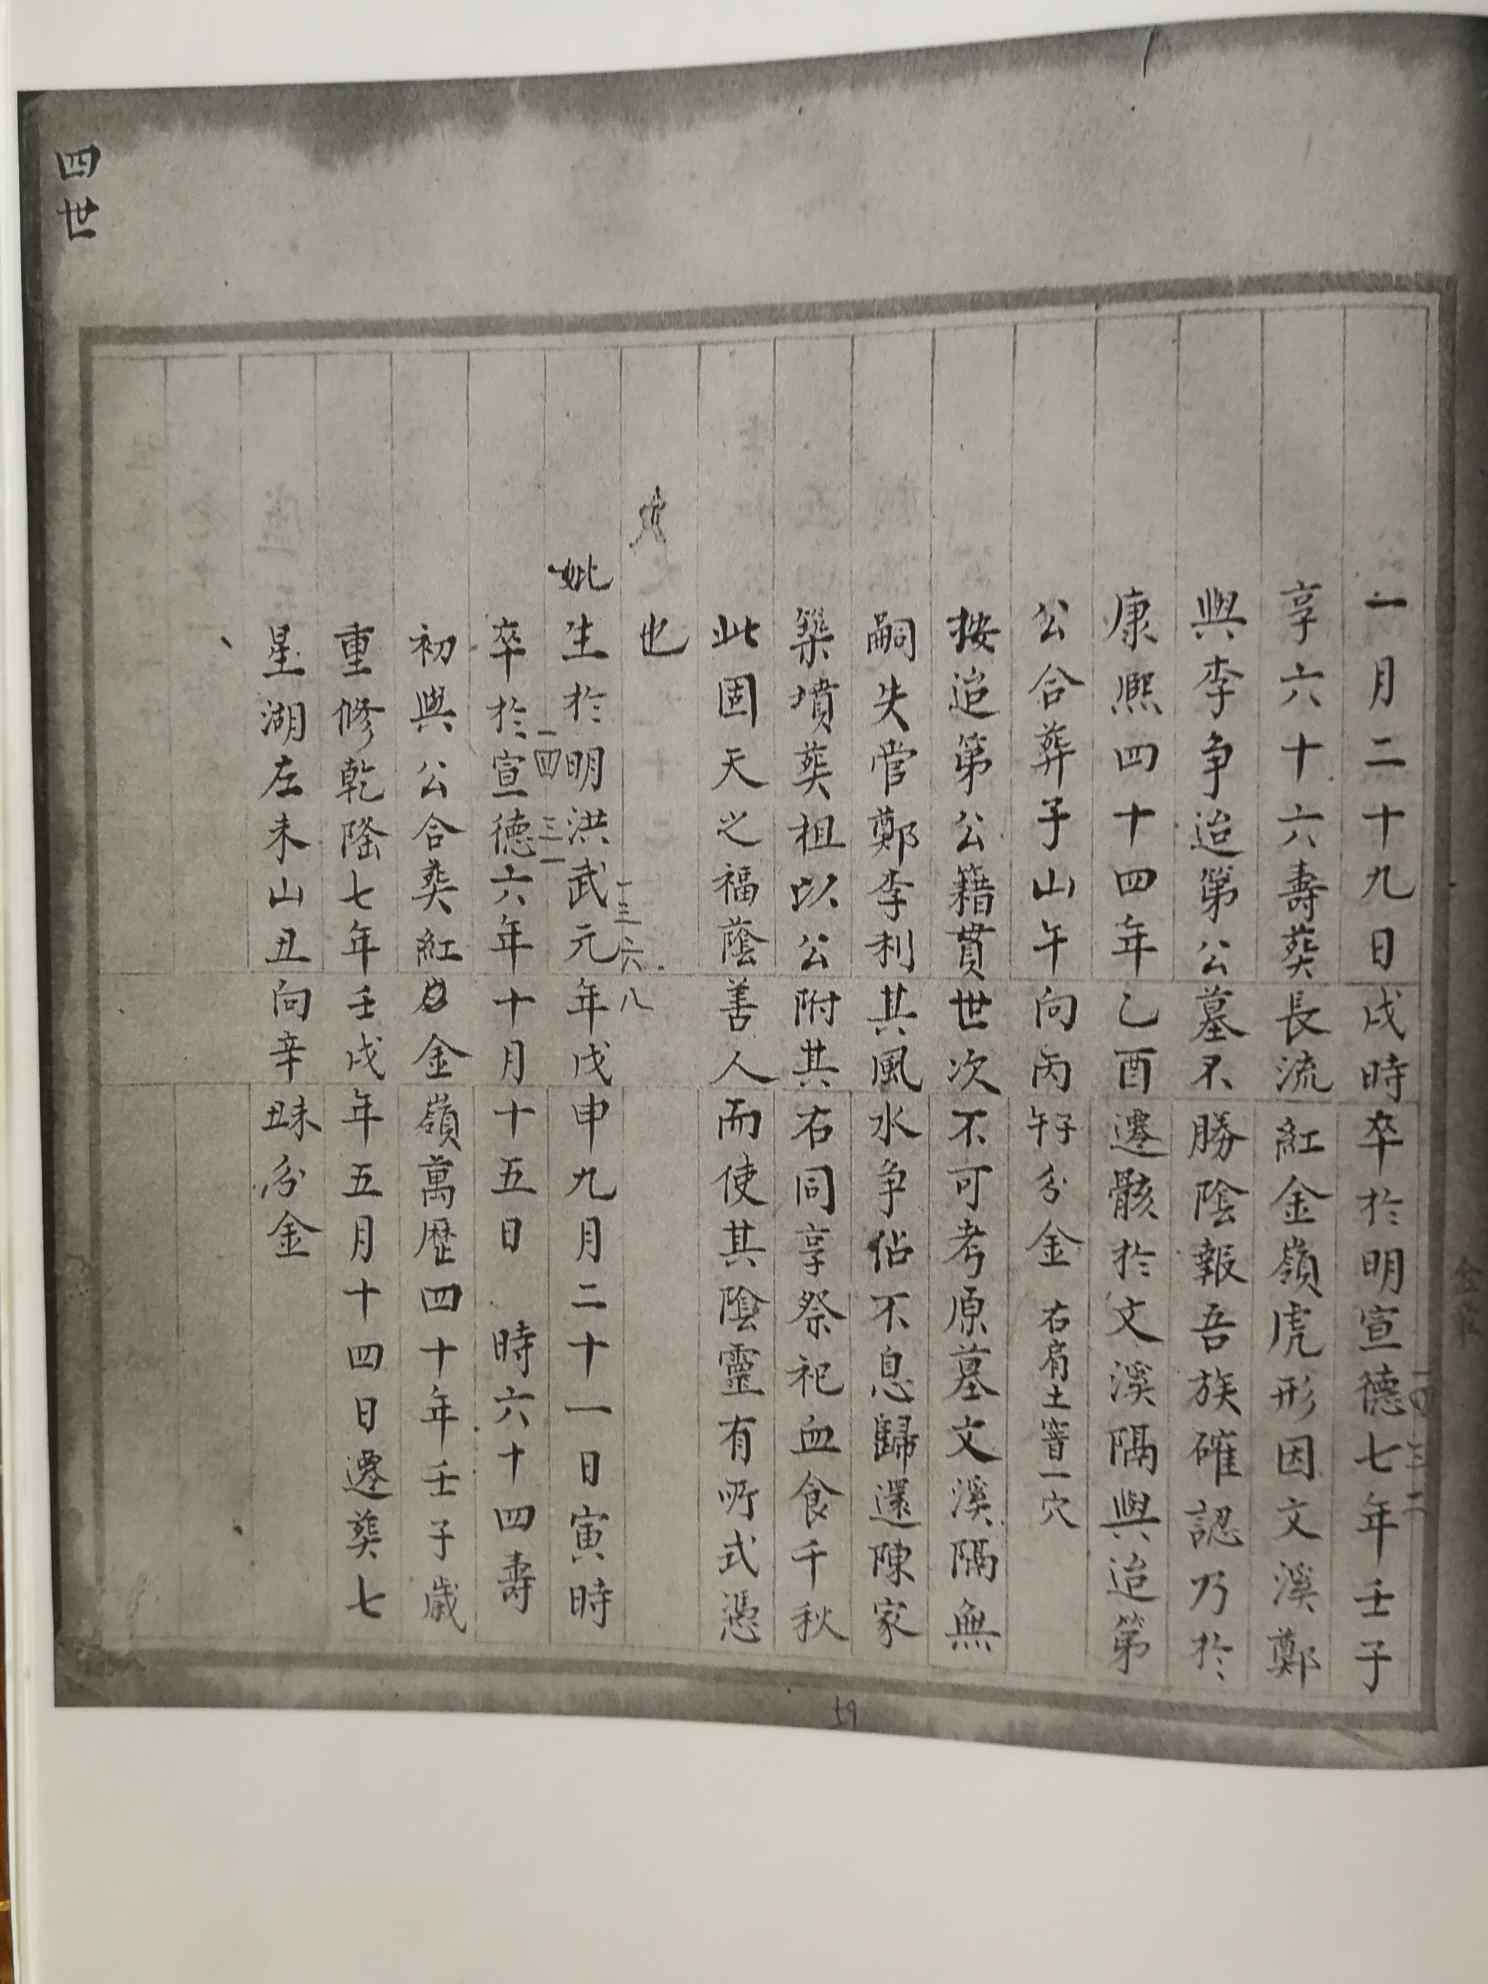 一月二十九日戌時卒於明宣德七年壬子
一四三二
享六十六壽葬長流紅金嶺虎形因文溪鄭
與李争迨第公墓不勝陰報吾族確認乃於
康熙四十四年乙酉遷骸於文溪隔與迨第
公合葬子山午向丙午子分金 右肩土窨一穴
按迨第公籍貫世次不可考原墓文溪隔無
嗣失管鄭李利其風水争佔不息歸還陳家
築墳葬祖以公附其右同享祭祀血食千秋
此固天之福蔭善人而使其陰靈有所式憑
也
一三六八
妣生於明洪武元年戊申九月二十一日寅時
一四三一
卒於宣德六年十月十五日 時六十四壽
初與公合葬紅金嶺萬歷四十年壬子歲
重修乾隆七年壬戌年五月十四日遷葬七
星湖左未山丑向辛丑未分金
四世
59